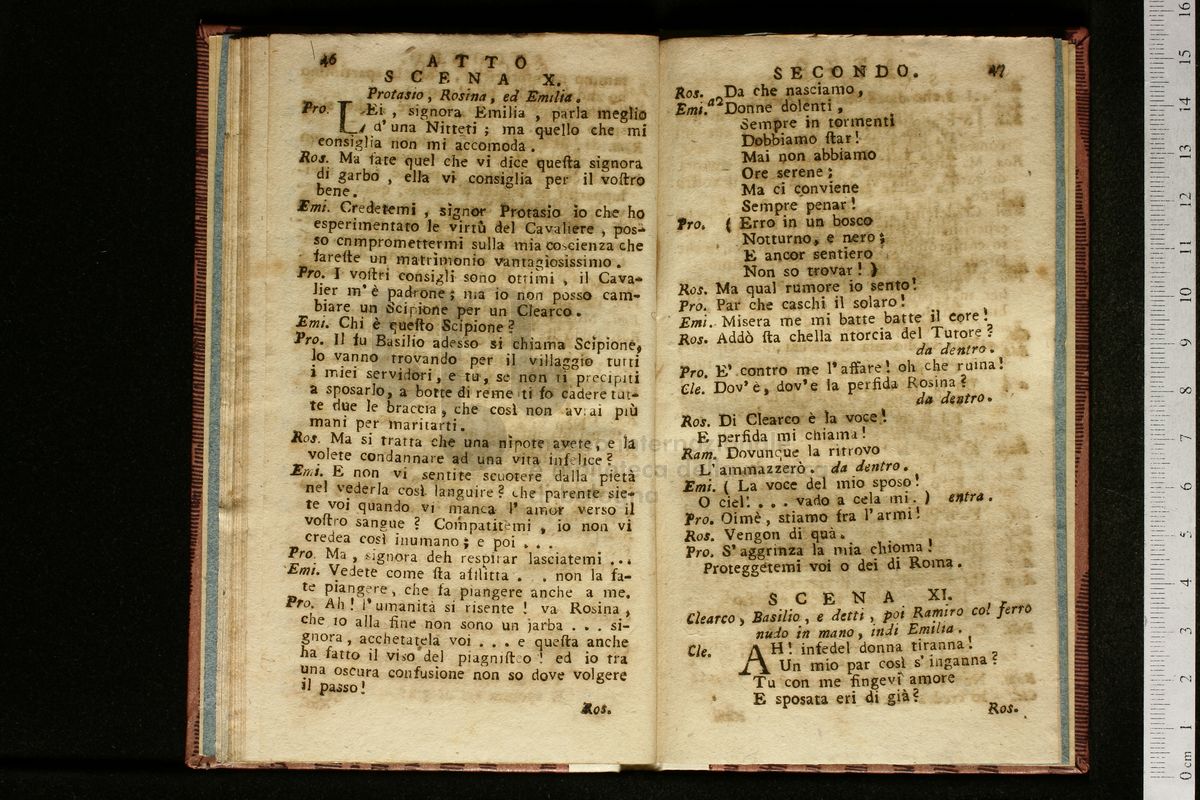 46
ATTO
SCENA X.
Protasio, Rosina, ed Emilia.
Pro. LEi, signora Emilia, parla meglio
d'una Nitteti; ma quello che mi
consiglia non mi accomoda.
Ros. Ma fate quel che vi dice questa signora
di garbo, ella vi consiglia per il vostro
bene.
Emi. Credetemi, signor Protasio io che ho
esperimentato le virtù del Cavaliere, pos-
so cnmpromettermi sulla mia coscienza che
fareste un matrimonio vantagiosissimo.
Pro. I vostri consigli sono ottimi, il Cava-
lier m'è padrone; ma io non posso cam-
biare un Scipione per un Clearco.
Emi. Chi è questo Scipione?
Pro. Il fu Basilio adesso si chiama Scipione,
lo vanno trovando per il villaggio tutti
i miei servidori, e tu, se non ti precipiti
a sposarlo, a botte di reme ti fo cadere tut-
te due le braccia, che così non avrai più
mani per maritarti.
Ros. Ma si tratta che una nipote avete, e la
volete condannare ad una vita infelice?
Emi. E non vi sentite scuotere dalla pietà
nel vederla così languire? che parente sie-
te voi quando vi manca l'amor verso il
vostro sangue? Compatitemi, io non vi
credea così inumano; e poi ...
Pro. Ma, signora deh respirar lasciatemi ...
Emi. Vedete come sta afflitta . . non la fa-
te piangere, che fa piangere anche a me.
Pro. Ah! l'umanità si risente! va Rosina,
che io alla fine non sono un jarba ... si-
gnora, acchetatela voi ... e questa anche
ha fatto il viso del piagnisteo! ed io tra
una oscura confusione non so dove volgere
il passo!
Ros.
SECONDO.
47
Ros. Da che nasciamo,
Emi. a2 Donne dolenti,
Sempre in tormenti
Dobbiamo star!
Mai non abbiamo
Ore serene;
Ma ci conviene
Sempre penar!
Pro. ( Erro in un bosco
Notturno, e nero;
E ancor sentiero
Non so trovar! )
Ros. Ma qual rumore io sento!
Pro. Par che caschi il solaro!
Emi. Misera me mi batte batte il core!
Ros. Addò sta chella ntorcia del Tutore?
da dentro.
Pro. E' contro me l'affare! oh che ruina!
Cle. Dov'è, dov'e la perfida Rosina?
da dentro.
Ros. Di Clearco è la voce!
E perfida mi chiama!
Ram. Dovunque la ritrovo
L'ammazzerò. da dentro.
Emi. ( La voce del mio sposo!
O ciel! ... vado a cela mi. ) entra.
Pro. Oimè, stiamo fra l'armi!
Ros. Vengon di quà.
Pro. S'aggrinza la mia chioma!
Proteggetemi voi o dei di Roma.
SCENA XI.
Clearco, Basilio, e detti, poi Ramiro col ferro
nudo in mano, indi Emilia.
Cle. AH! infedel donna tiranna!
Un mio par così s'inganna?
Tu con me fingevi amore
E sposata eri di già?
Ros.